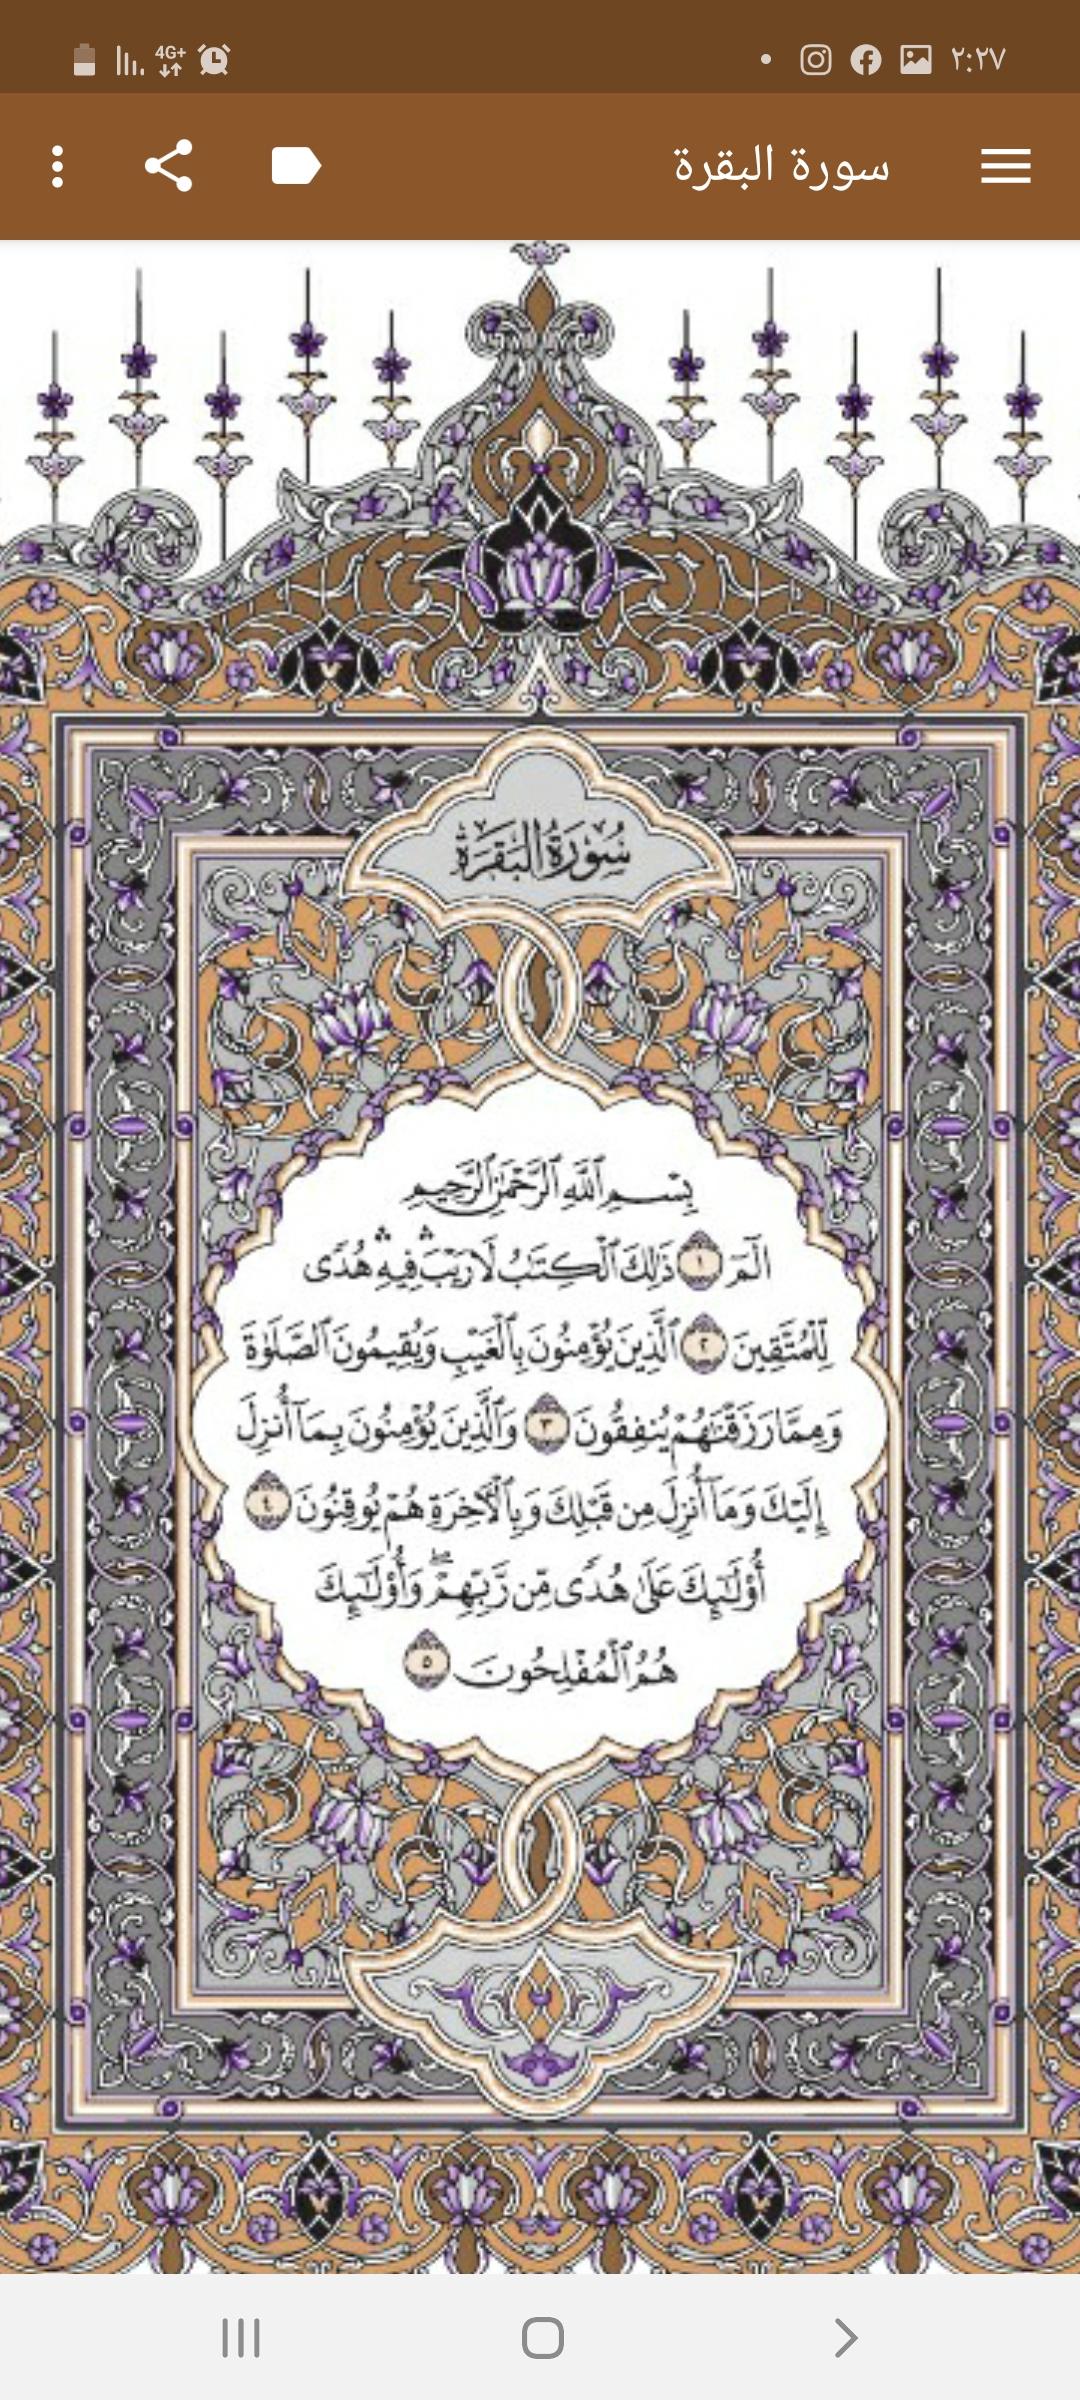 4G+
٢:٢٧
سورة البقرة
سُورَةُ البَقَرَةِ
بِسْمِ ٱللَّهِ ٱلرَّحْمَٰنِ ٱلرَّحِيمِ
الٓمٓ ١ ذَٰلِكَ ٱلْكِتَٰبُ لَا رَيْبَ ۛ فِيهِ ۛ هُدًى
لِّلْمُتَّقِينَ ٢ ٱلَّذِينَ يُؤْمِنُونَ بِٱلْغَيْبِ وَيُقِيمُونَ ٱلصَّلَوٰةَ
وَمِمَّا رَزَقْنَٰهُمْ يُنفِقُونَ ٣ وَٱلَّذِينَ يُؤْمِنُونَ بِمَآ أُنزِلَ
إِلَيْكَ وَمَآ أُنزِلَ مِن قَبْلِكَ وَبِٱلْءَاخِرَةِ هُمْ يُوقِنُونَ ٤
أُو۟لَٰٓئِكَ عَلَىٰ هُدًى مِّن رَّبِّهِمْ ۖ وَأُو۟لَٰٓئِكَ
هُمُ ٱلْمُفْلِحُونَ ٥